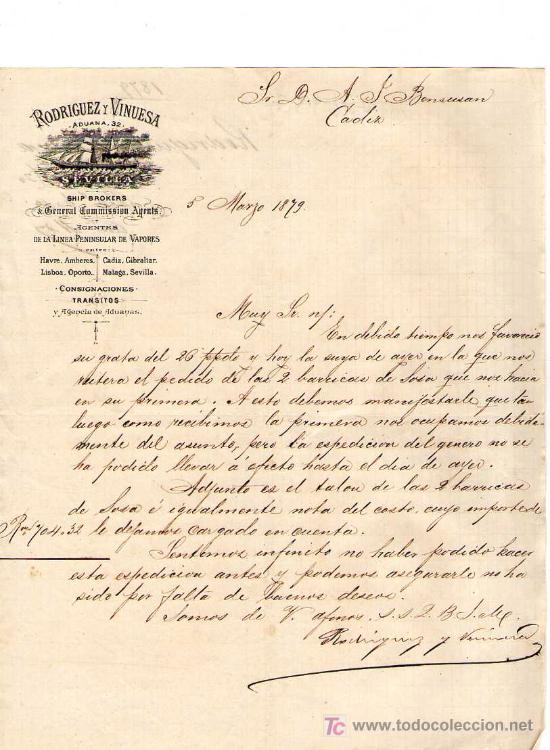 Sr. D. A. J. Bensusan
Cadiz
RODRIGUEZ Y VINUESA
ADUANA, 32.
SEVILLA
SHIP BROKERS
& General Commission Agents.
AGENTES
DE LA LINEA PENINSULAR DE VAPORES
entre
Havre, Amberes, Cadiz, Gibraltar,
Lisboa, Oporto, Malaga, Sevilla.
CONSIGNACIONES
TRANSITOS
y Agencia de Aduanas.
5 Marzo 1879.
Muy Sr. n/:
En debido tiempo nos favorecio
su grata del 26 ppdo y hoy la suya de ayer en la que nos
reitera el pedido de las 2 barricas de Sosa que nos hacia
en su primera. A esto debemos manifestarle que tan
luego como recibimos la primera nos ocupamos debida-
mente del asunto, pero la espedicion del genero no se
ha podido llevar á efecto hasta el dia de ayer.
Adjunto es el talon de las 2 barricas
de Sosa é igualmente nota del costo, cuyo importe de
Rvn 704.32 le dejamos cargado en cuenta.
Sentimos infinito no haber podido hacer
esta espedicion antes y podemos asegurarle no ha
sido por falta de buenos deseos.
Somos de V. afmos. s.s. Q. B. S. M.
Rodriguez y Vinuesa
TC www.todocoleccion.net